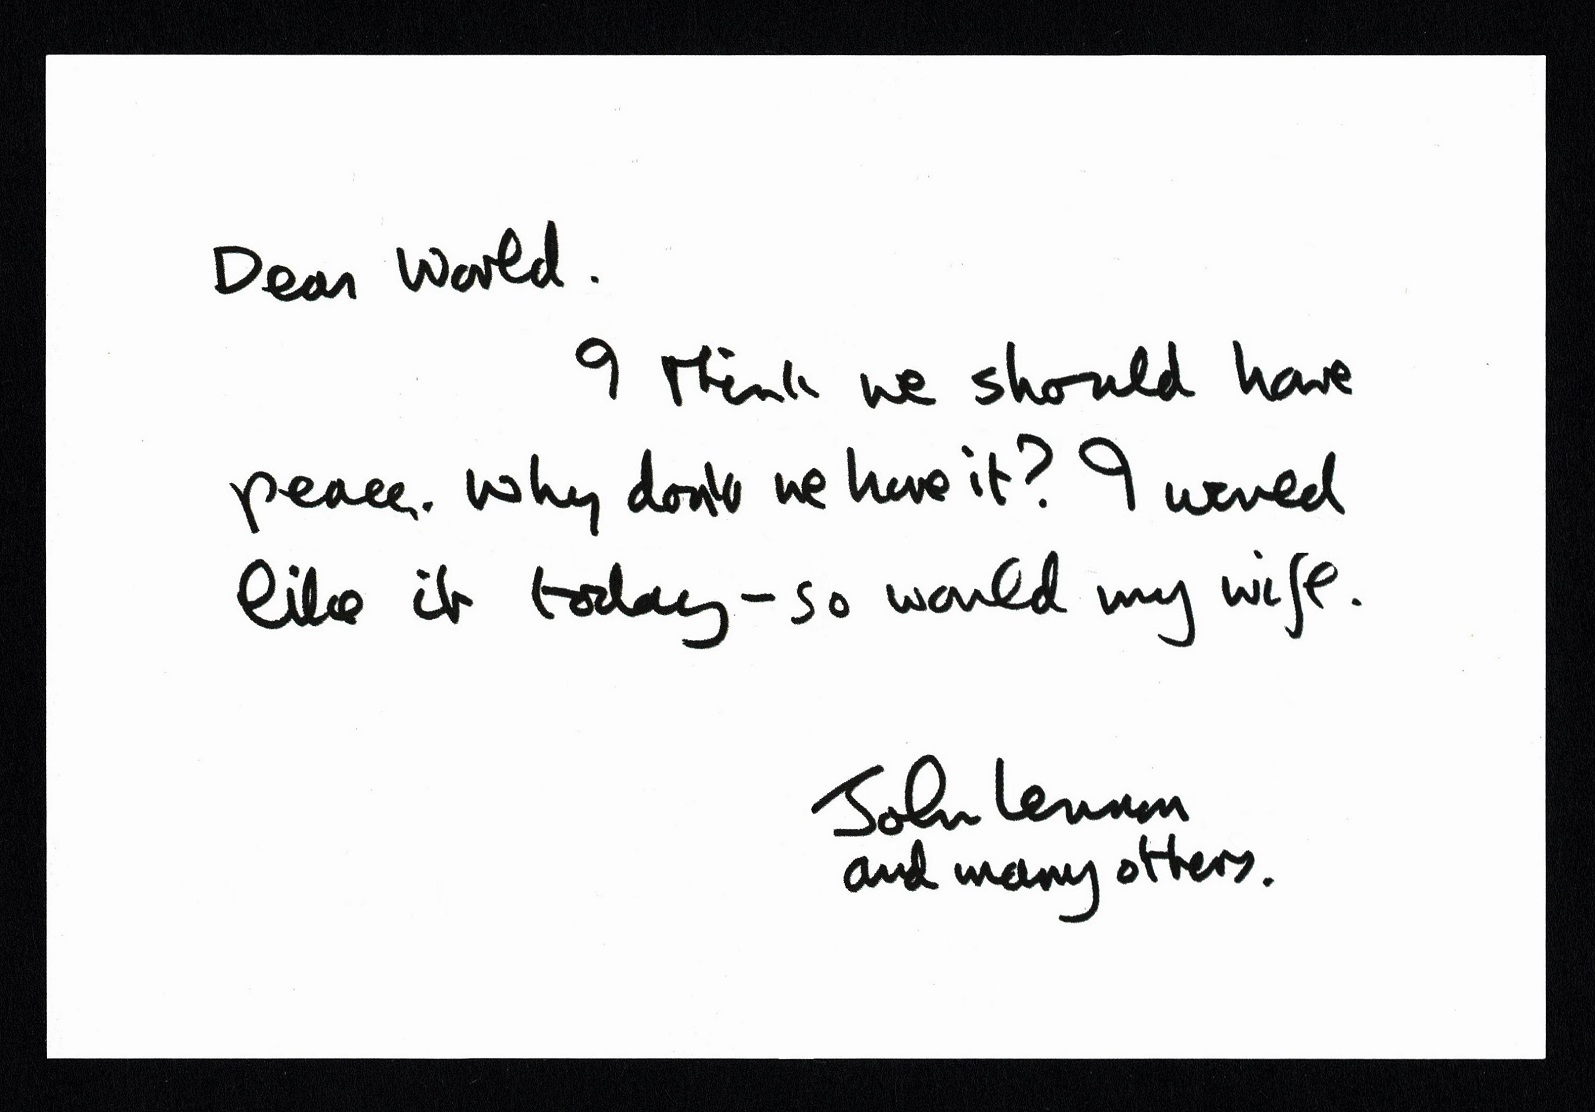 Dear World.
I think we should have
peace. Why don't we have it? I would
like it today - so would my wife.
John Lennon
and many others.